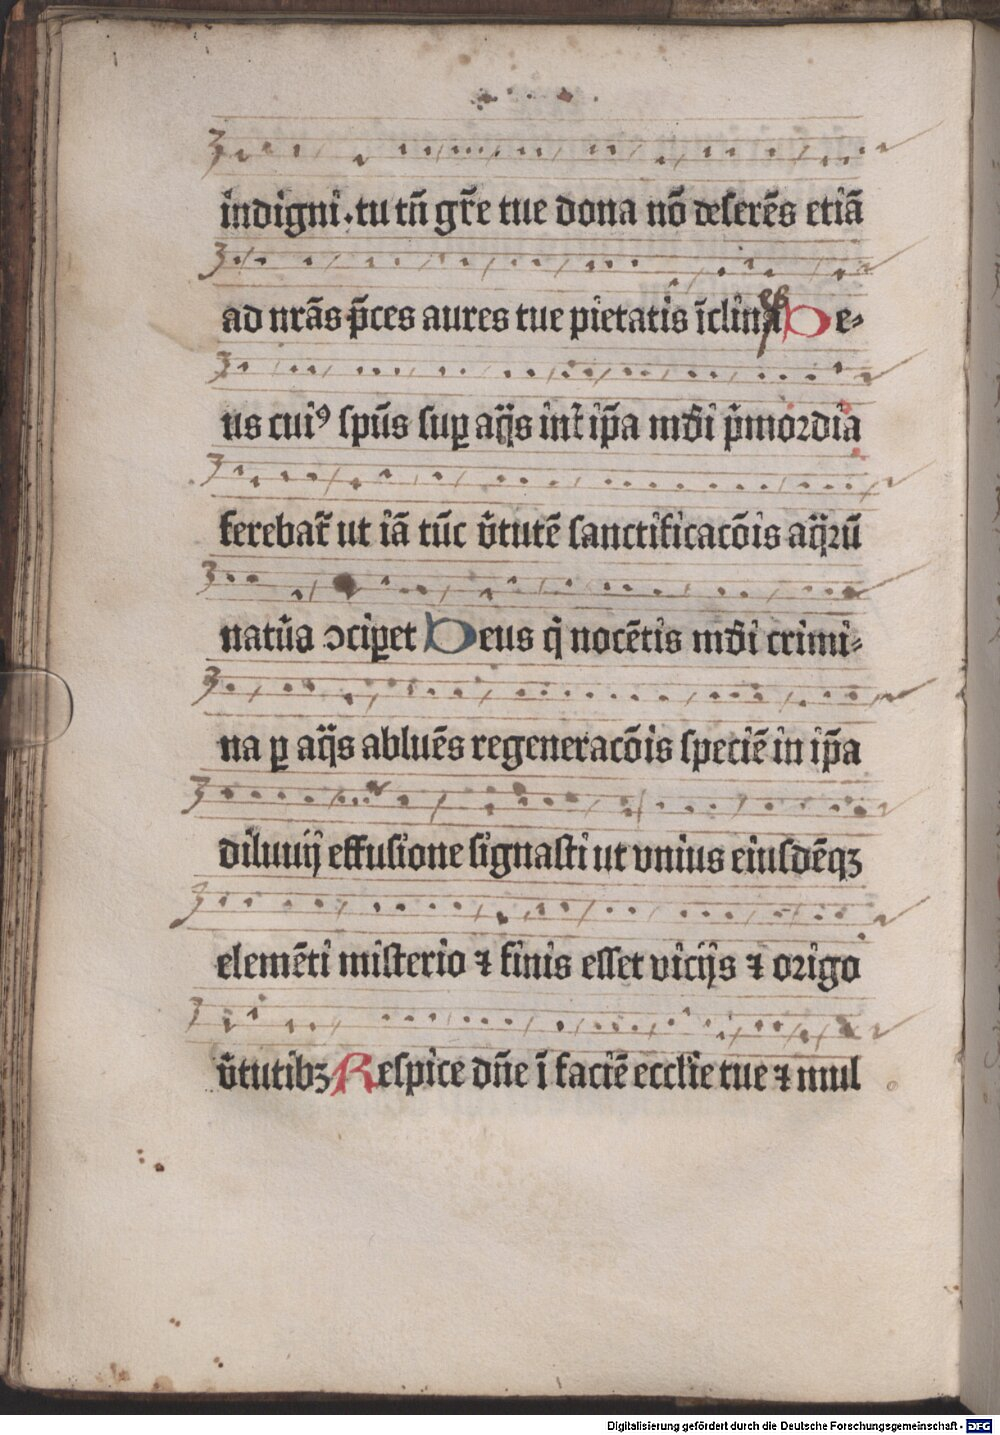 indigni·tu tñ gr̃e tue dona nō deserēs etiā
ad nr̃as p̄ces aures tue pietatis īclina De-
es
us cuiꝯ spūs suꝑ aq̈s int̄ ip̄a mūdi p̄mordia
ferebat̄ ut iā tūc v̄tutē sanctificacōis aq̈rū
natūa ↄciꝑet Deus q̇ nocētis mūdi crimi-
na ꝑ aq̈s abluēs regeneracōis speciē in ip̄a
diluuij effusione signasti ut vnius eiusdēqꝫ
elemēti misterio ⁊ finis esset vicijs ⁊ origo
v̄tutibꝫ Respice dn̄e ī faciē eccl̄ie tue ⁊ mul
Digitalisierung gefördert durch die Deutsche Forschungsgemeinschaft - DFG